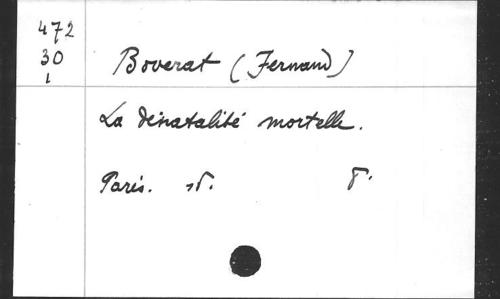 472
30
1
Boverat (Fernand)
La dénatalité mortelle.
Paris. sd. 8°.